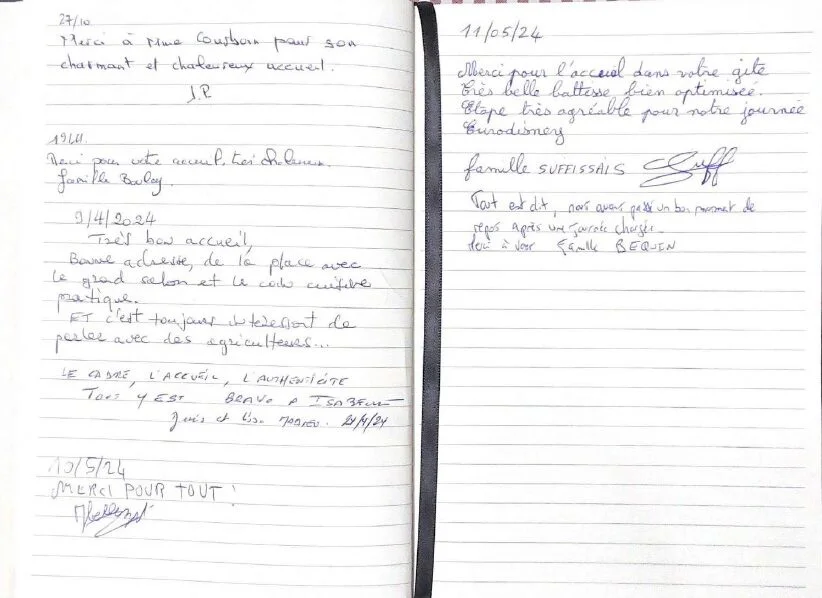 27/10
Merci à Mme pour son
charmant et chaleureux accueil.
J.P
19/11.
Merci pour votre accueil, très chaleureux.
famille
9/4/2024
Très bon accueil,
Bonne adresse, de la place avec
le grand salon et le coin cuisine
pratique.
ET c'est toujours intéressant de
parler avec des agriculteurs...
LE CADRE, L'ACCUEIL, L'AUTHENTICITE
TOUT Y EST BRAVO A ISABELLE
et 21/4/24
10/5/24
MERCI POUR TOUT !
11/05/24
Merci pour l'accueil dans votre gite
Très belle battesse bien optimisée.
Etape très agréable pour notre journée
Eurodisney
famille SUFFISSAIS
Tout est dit, nous avons passé un bon moment de
repos après une journée chargée.
Merci à vous Famille BEQUIN